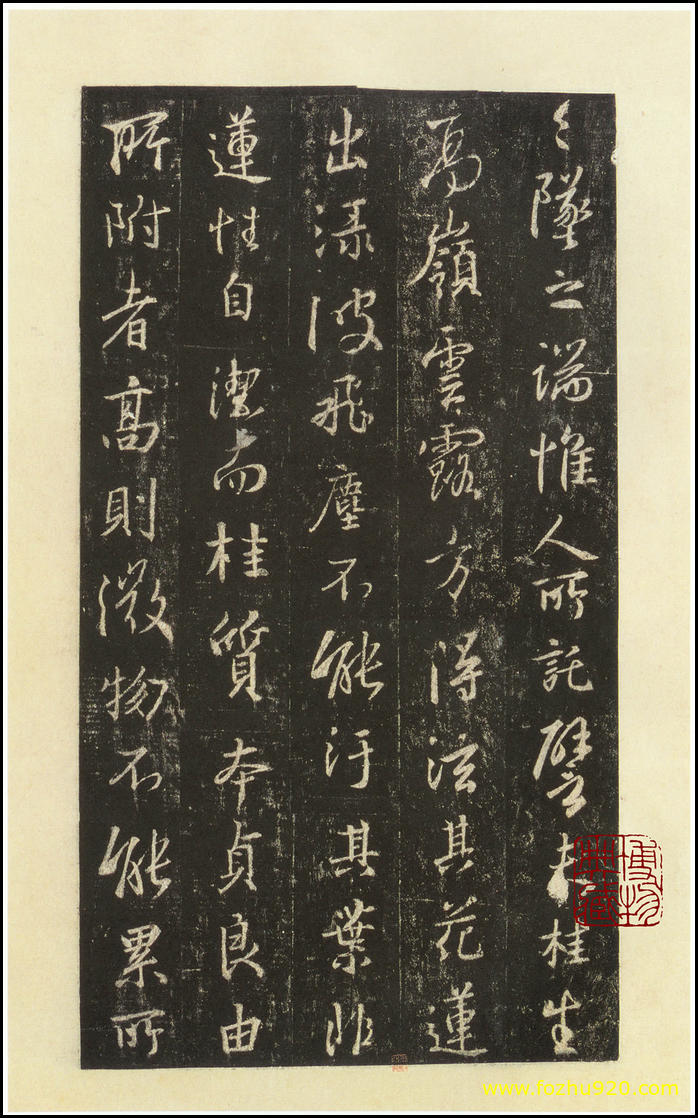 〻墜之端惟人所託譬夫桂生
高嶺雲露方得泫其花蓮
出淥波飛塵不能汙其葉非
蓮性自潔而桂質本貞良由
所附者高則微物不能累所
www.fozhu920.com